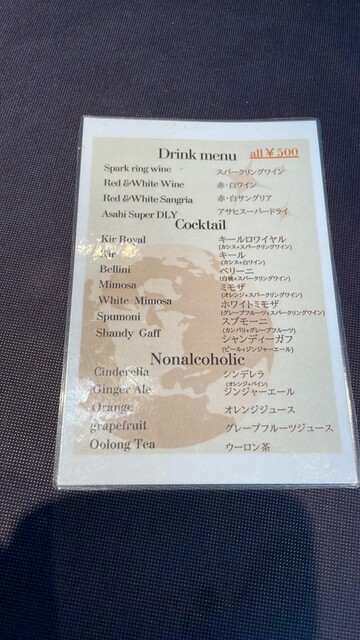 Drink menu all ¥ 500
Spark ring wine スパークリングワイン
Red &White Wine 赤・白ワイン
Red &White Sangria 赤・白サングリア
Asahi Super DLY アサヒスーパードライ
Cocktail
Kir Royal キールロワイヤル
(カシス+スパークリングワイン)
Kir キール
(カシス+白ワイン)
Bellini ベリーニ
(白桃+スパークリングワイン)
Mimosa ミモザ
(オレンジ+スパークリングワイン)
White Mimosa ホワイトミモザ
(グレープフルーツ+スパークリングワイン)
Spumoni スプモーニ
(カンパリ+グレープフルーツ)
Shandy Gaff シャンディーガフ
(ビール+ジンジャーエール)
Nonalcoholic
Cinderella シンデレラ
(オレンジ+パイン)
Ginger Ale ジンジャーエール
Orange オレンジジュース
grapefruit グレープフルーツジュース
Oolong Tea ウーロン茶